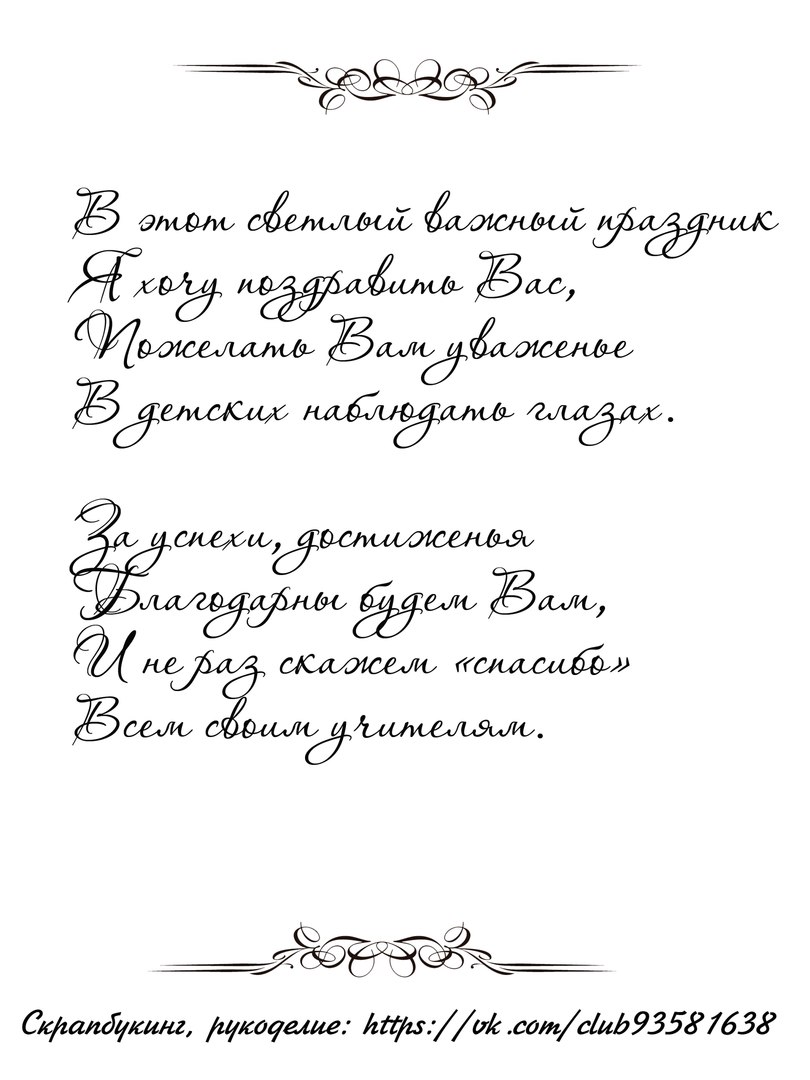 В этот светлый важный праздник
Я хочу поздравить Вас,
Пожелать Вам уваженье
В детских наблюдать глазах.
За успехи, достиженья
Благодарны будем Вам,
И не раз скажем «спасибо»
Всем своим учителям.
Скрапбукинг, рукоделие: https://vk.com/club93581638